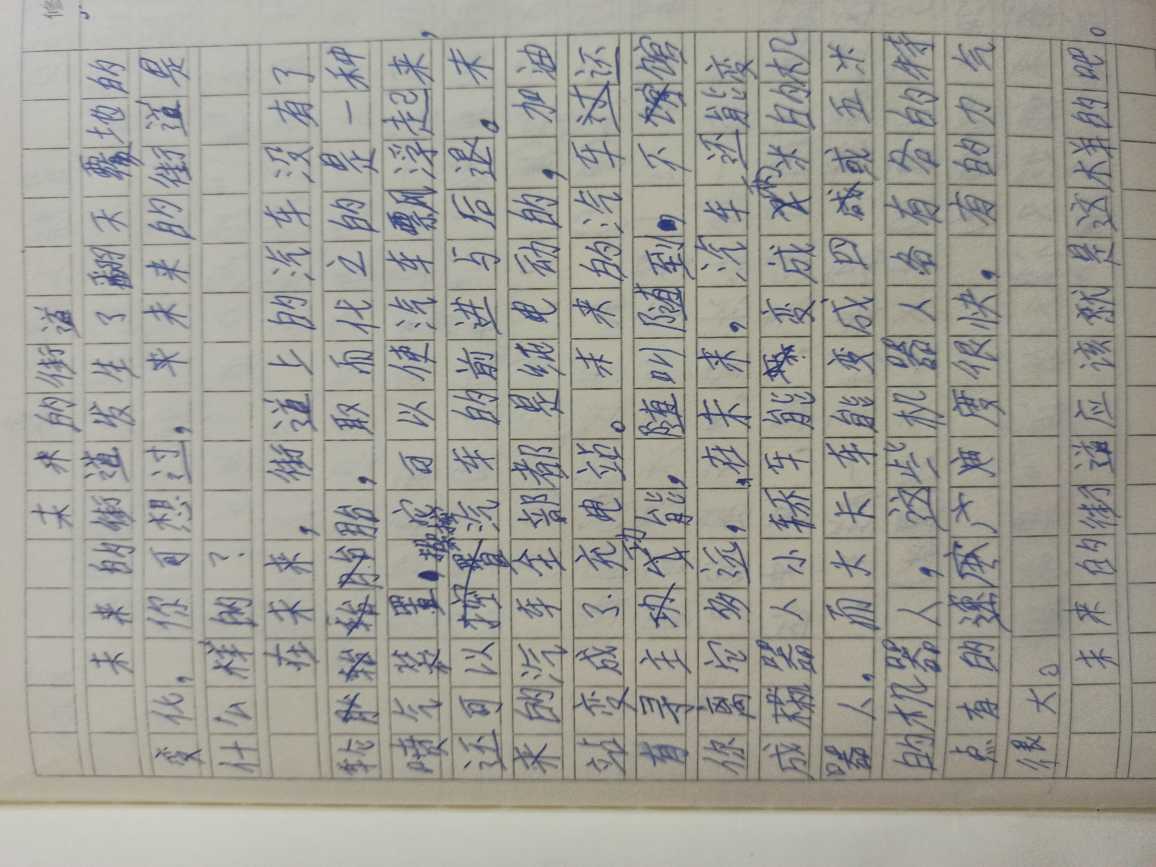 修
未来的街道
未来的街道发生了翻天覆地的
变化，你可想过，未来来的街道是
什么样的？
在未来，街道上的汽车没有了
轮胎，取而代之的是一种
喷气装置，它可以使汽车飘浮起来，
还可以操控汽车的前进与后退。未
来的汽车全部都是纯电动的，加油
站变成了充电站。未来的汽车还
有寻主功能，随叫随到。不管
你离它多远，在未来，汽车还能变
成机器人小轿车能变成两米的机
器人，而大卡车能变成四或五米
的机器人，这些机器人各有各的特
点有的强庆，速度很快，有的力气
很大。
未来的街道应该就是这大样的吧。